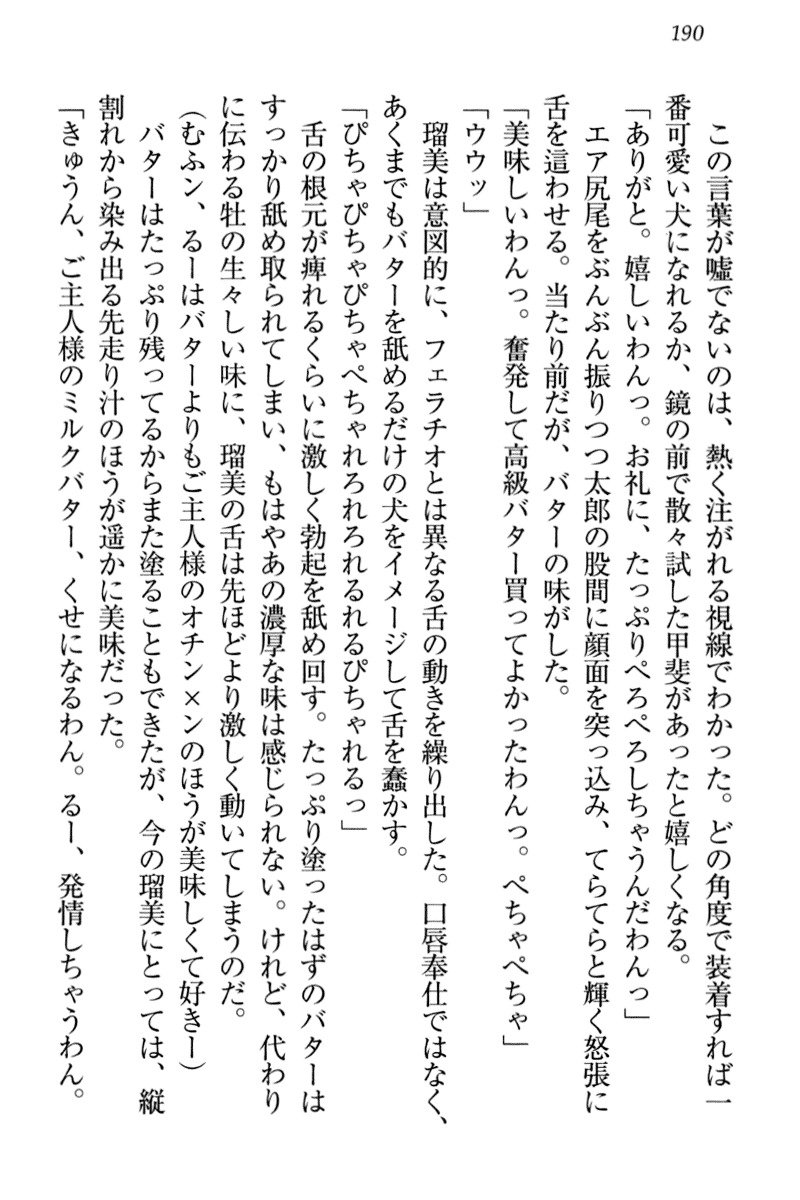 190
この言葉が嘘でないのは、熱く注がれる視線でわかった。どの角度で装着すれば一
番可愛い犬になれるか、鏡の前で散々試した甲斐があったと嬉しくなる。
「ありがと。嬉しいわんっ。お礼に、たっぷりぺろぺろしちゃうんだわんっ」
エア尻尾をぶんぶん振りつつ太郎の股間に顔面を突っ込み、てらてらと輝く怒張に
舌を這わせる。当たり前だが、バターの味がした。
「美味しいわんっ。奮発して高級バター買ってよかったわんっ。ぺちゃぺちゃ」
「ウウッ」
瑠美は意図的に、フェラチオとは異なる舌の動きを繰り出した。口唇奉仕ではなく、
あくまでもバターを舐めるだけの犬をイメージして舌を蠢かす。
「ぴちゃぴちゃぴちゃぺちゃれろれろれるれるぴちゃれるっ」
舌の根元が痺れるくらいに激しく勃起を舐め回す。たっぷり塗ったはずのバターは
すっかり舐め取られてしまい、もはやあの濃厚な味は感じられない。けれど、代わり
に伝わる牡の生々しい味に、瑠美の舌は先ほどより激しく動いてしまうのだ。
（むふン、るーはバターよりもご主人様のオチン×ンのほうが美味しくて好きー）
バターはたっぷり残ってるからまた塗ることもできたが、今の瑠美にとっては、縦
割れから染み出る先走り汁のほうが遥かに美味だった。
「きゅうん、ご主人様のミルクバター、くせになるわん。るー、発情しちゃうわん。